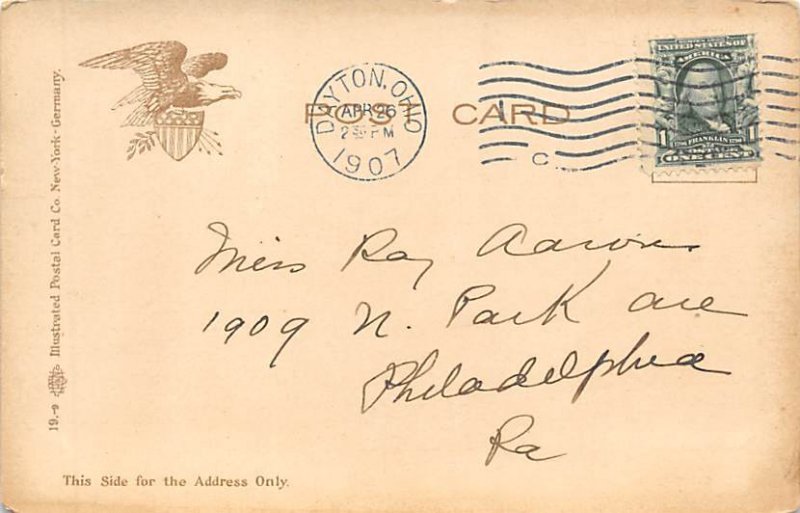 POST CARD
DAYTON, OHIO
APR 26
2 30 PM
1907
C
UNITED STATES OF
AMERICA
1 1
FRANKLIN
ONE CENT
Miss Ray Aarons
1909 N. Park ave
Philadelphia
Pa
This Side for the Address Only.
19.-9 Illustrated Postal Card Co. New-York - Germany.